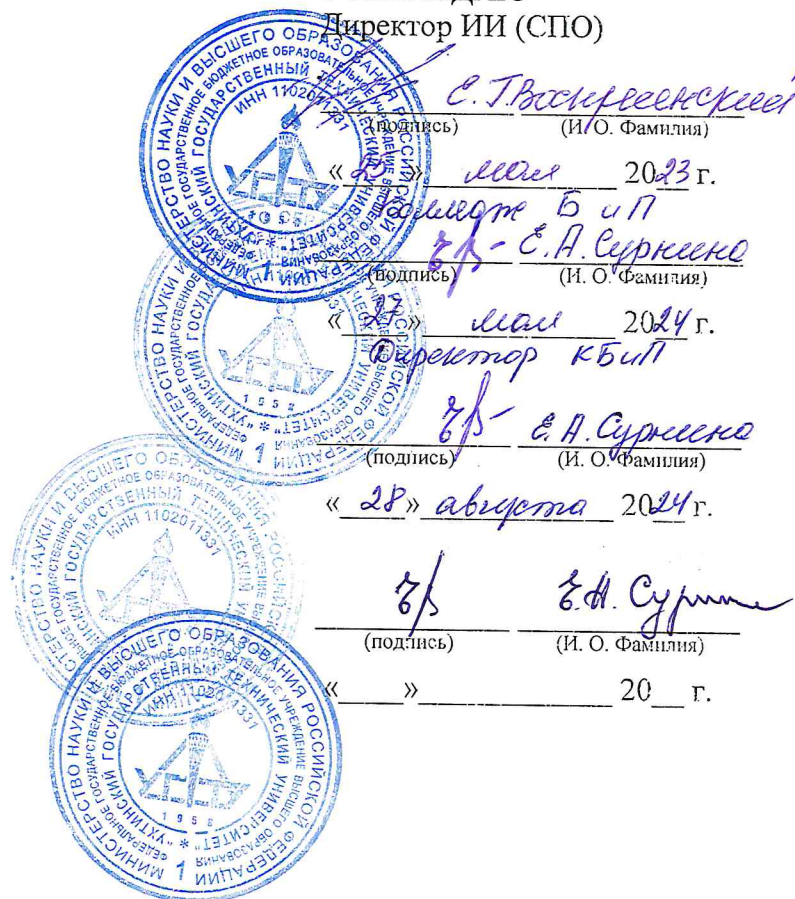 Директор ИИ (СПО)
Е. Г. Воскресенский
(подпись) (И. О. Фамилия)
« 25 » мая 2023 г.
Колледж Б и П
Е. А. Суркина
(подпись) (И. О. Фамилия)
« 27 » мая 2024 г.
Директор КБиП
Е. А. Суркина
(подпись) (И. О. Фамилия)
« 28 » августа 2024 г.
Е. А.
(подпись) (И. О. Фамилия)
« » 20 г.
МИНИСТЕРСТВО НАУКИ И ВЫСШЕГО ОБРАЗОВАНИЯ РОССИЙСКОЙ ФЕДЕРАЦИИ
ФЕДЕРАЛЬНОЕ ГОСУДАРСТВЕННОЕ БЮДЖЕТНОЕ ОБРАЗОВАТЕЛЬНОЕ УЧРЕЖДЕНИЕ ВЫСШЕГО ОБРАЗОВАНИЯ
"УХТИНСКИЙ ГОСУДАРСТВЕННЫЙ ТЕХНИЧЕСКИЙ УНИВЕРСИТЕТ"
ИНН 1102011331
УГТУ
1958
1